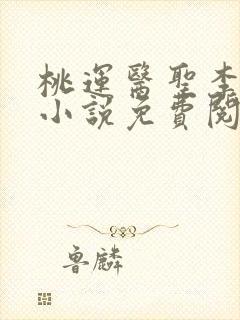 桃運醫聖李
小說免費閱
魯麟